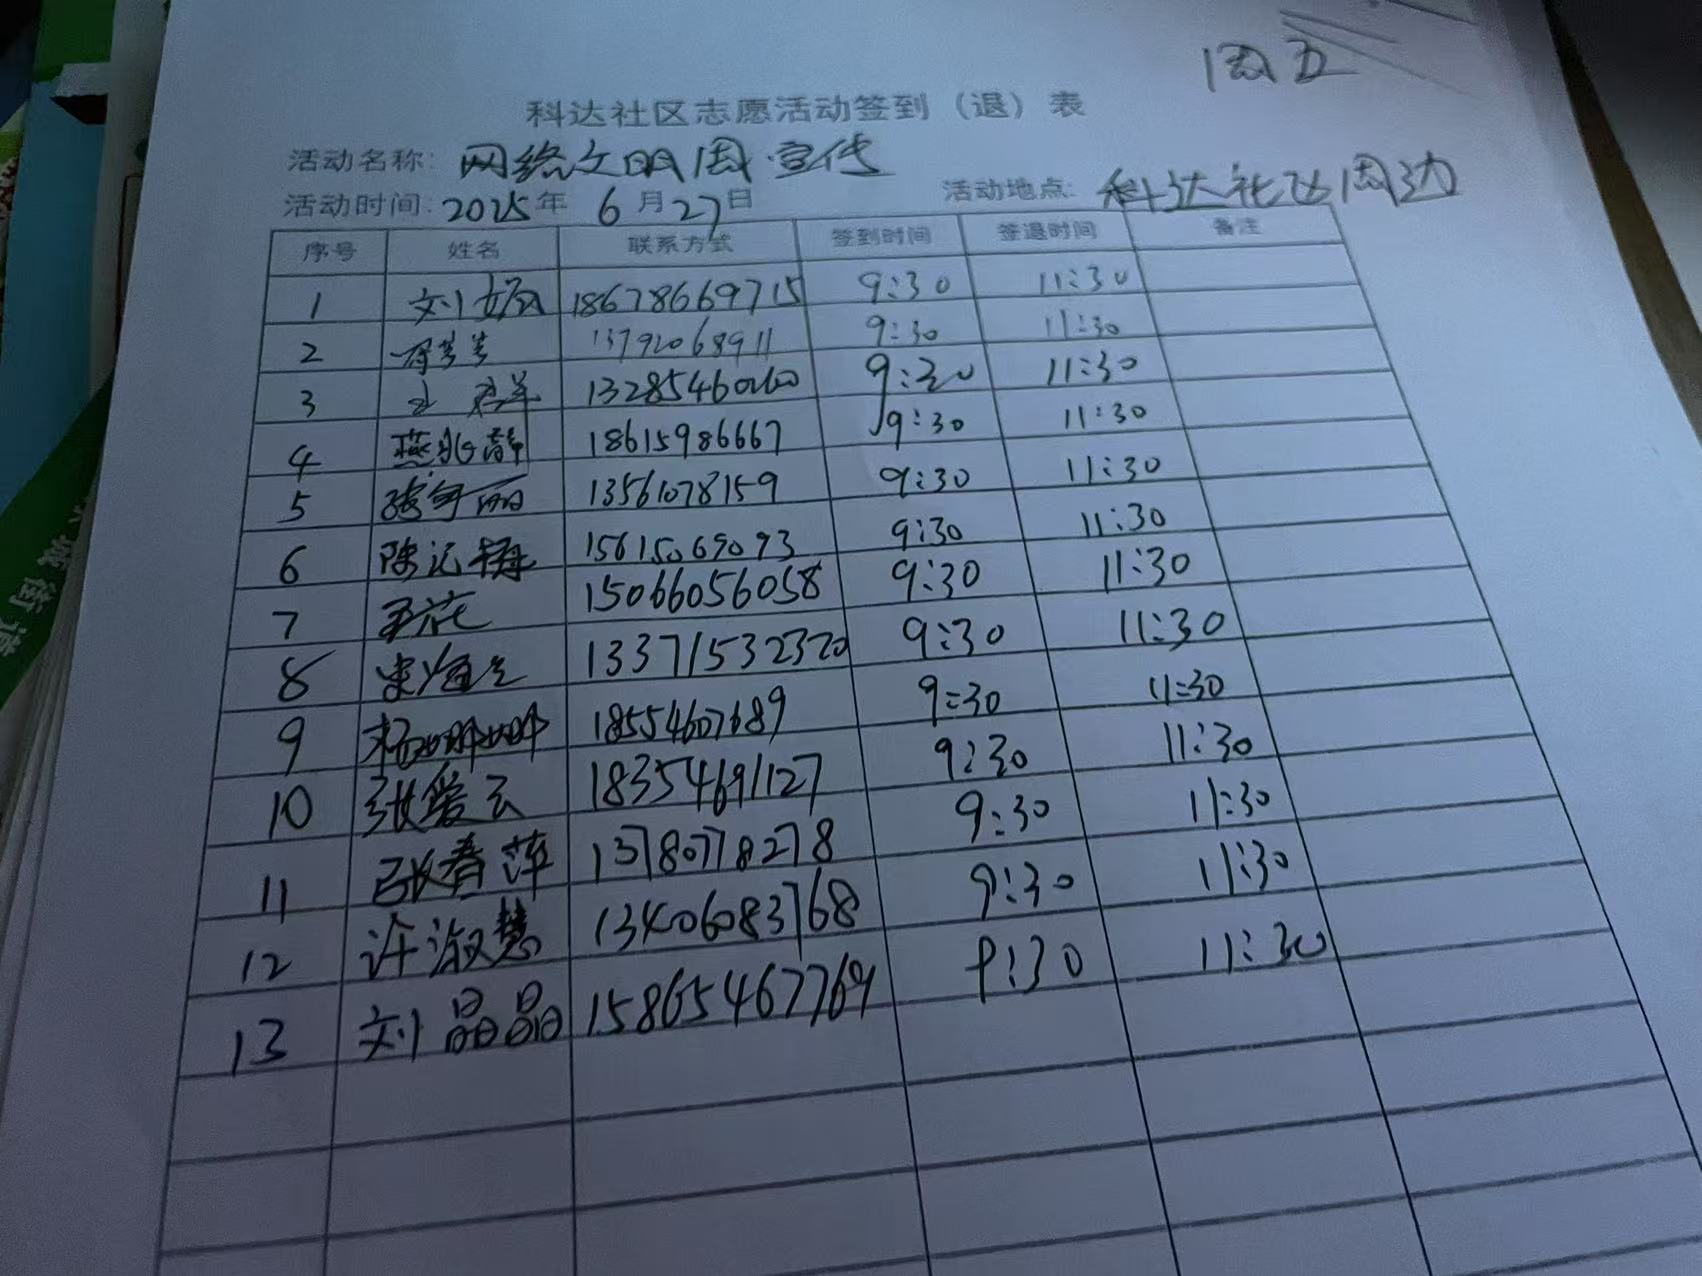 周五
科达社区志愿活动签到（退）表
活动名称: 网络文明周宣传
活动时间: 2025年 6月27日 活动地点: 科达社区周边
序号 姓名 联系方式 签到时间 签退时间 备注
1 刘 18678669715 9:30 11:30
2 13792068911 9:30 11:30
3 9:30 11:30
4 燕 静 18615986667 9:30 11:30
5 丽 13561078159 9:30 11:30
6 陈 梅 15615069093 9:30 11:30
7 花 15066056058 9:30 11:30
8 13371532320 9:30 11:30
9 杨娜娜 18554607689 9:30 11:30
10 张爱云 18354691127 9:30 11:30
11 张春萍 13780778278 9:30 11:30
12 许淑慧 13406083768 9:30 11:30
13 刘晶晶 15865467769 9:30 11:30
城街道